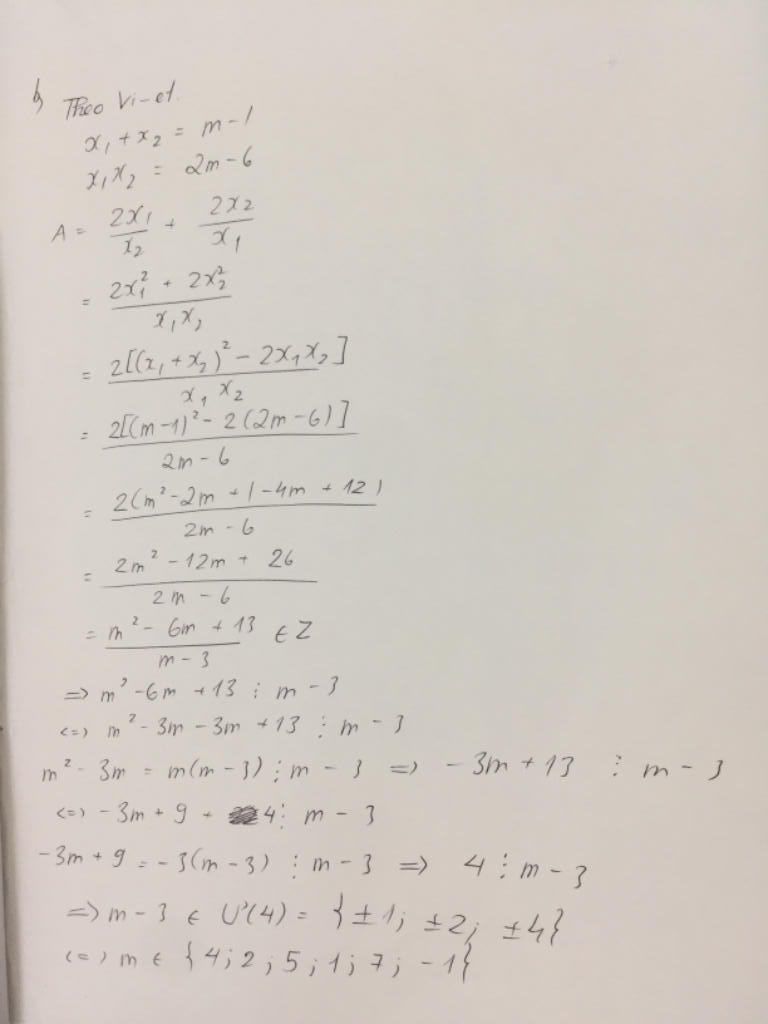 b) Theo Vi-et.
x₁ + x₂ = m - 1
x₁x₂ = 2m - 6
A = 2x₁/x₂ + 2x₂/x₁
= (2x₁² + 2x₂²)/(x₁x₂)
= 2[(x₁ + x₂)² - 2x₁x₂]/(x₁x₂)
= 2[(m-1)² - 2(2m-6)]/(2m - 6)
= 2(m² - 2m + 1 - 4m + 12)/(2m - 6)
= (2m² - 12m + 26)/(2m - 6)
= (m² - 6m + 13)/(m - 3) ∈ Z
=> m² - 6m + 13 ⋮ m - 3
<=> m² - 3m - 3m + 13 ⋮ m - 3
m² - 3m = m(m - 3) ⋮ m - 3 => - 3m + 13 ⋮ m - 3
<=> - 3m + 9 + 4 ⋮ m - 3
-3m + 9 = -3(m - 3) ⋮ m - 3 => 4 ⋮ m - 3
=> m - 3 ∈ Ư(4) = {±1; ±2; ±4}
<=> m ∈ {4; 2; 5; 1; 7; -1}